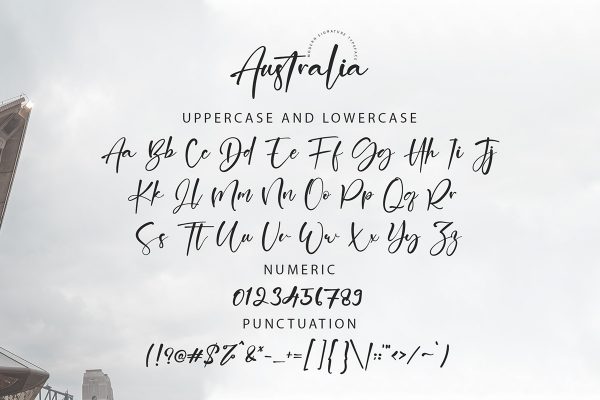 MODERN SIGNATURE TYPEFACE
Australia
UPPERCASE AND LOWERCASE
Aa Bb Cc Dd Ee Ff Gg Hh Ii Jj
Kk Ll Mm Nn Oo Pp Qq Rr
Ss Tt Uu Vv Ww Xx Yy Zz
NUMERIC
0123456789
PUNCTUATION
(!?@#$%^&*-_+=[]{}\|:;'"<>/~`)